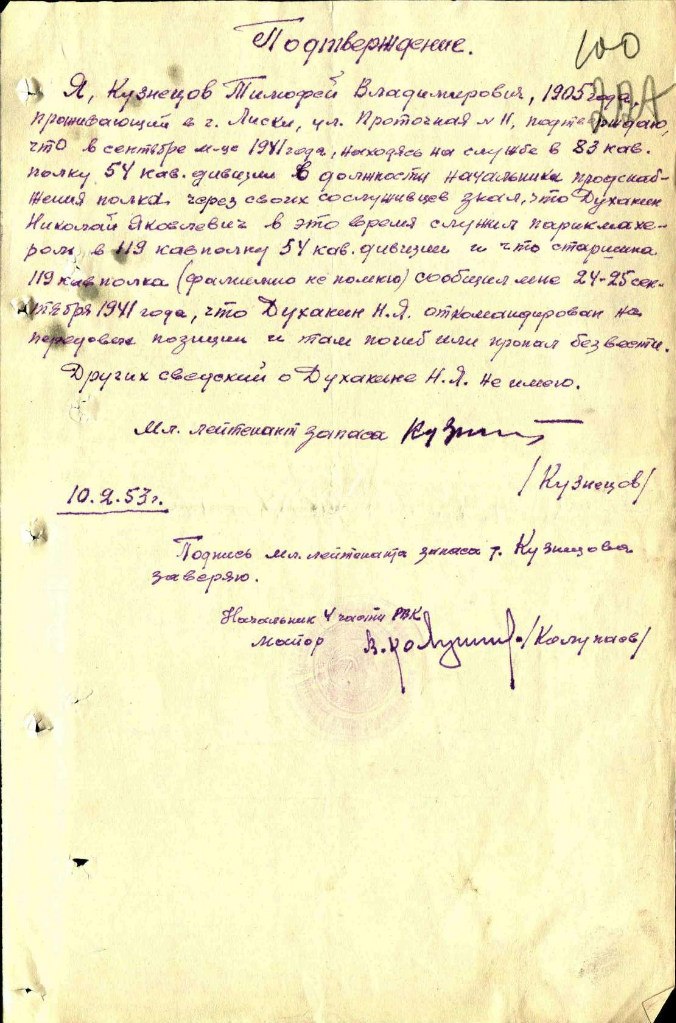 Подтверждение.
100
Я, Кузнецов Тимофей Владимирович, 1905 года,
проживающий в г. Лиски, ул. Проточная № 11, подтверждаю,
что в сентябре м-це 1941 года, находясь на службе в 83 кав.
полку 54 кав. дивизии в должности начальника продснаб-
жения полка через своих сослуживцев знал, что Духакин
Николай Яковлевич в это время служил парикмахе-
ром в 119 кавполку 54 кав. дивизии и что старшина
119 кавполка (фамилию не помню) сообщил мне 24-25 сен-
тября 1941 года, что Духакин Н.Я. откомандирован на
передовые позиции и там погиб или пропал безвести.
Других сведений о Духакине Н.Я. не имею.
Мл. лейтенант запаса
/Кузнецов/
10.2.53г.
Подпись мл. лейтенанта запаса т. Кузнецова
заверяю.
Начальник 4 части РВК
майор /Колупаев/